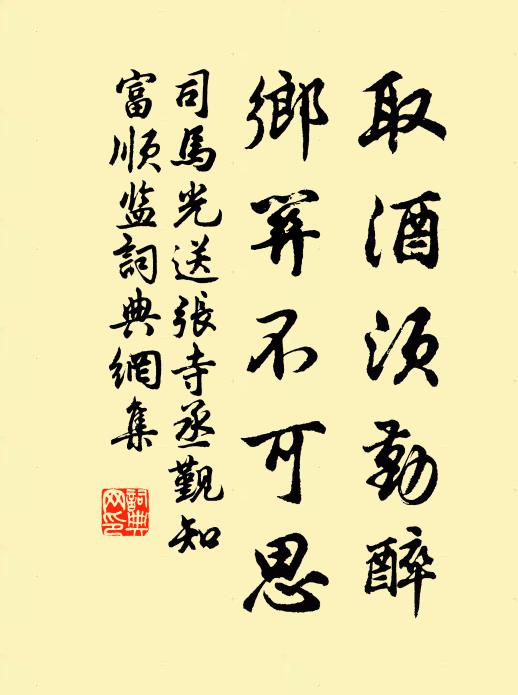 取酒須勤醉
鄉關不可思
司馬光送張寺丞覲知
富順监詞典網集
詞典
网印